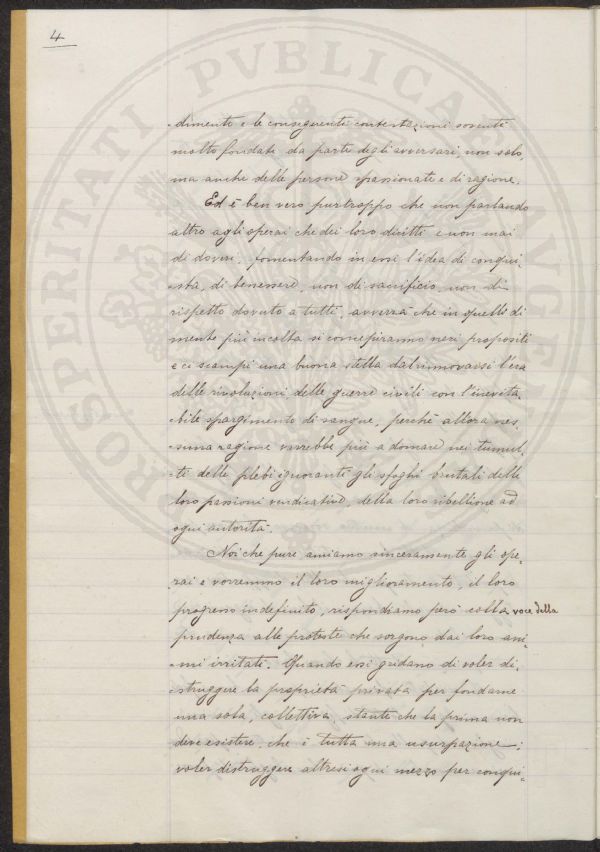 4
PROSPERITATI PVBLICAE AVGENDAE
- dimento e le conseguenti contestazioni sovente
molto fondate da parte degli avversari, non solo,
ma anche delle persone spassionate e di ragione.
Ed è ben vero purtroppo che non parlando
altro agli operai che dei loro diritti e non mai
di doveri, fomentando in essi l'idea di conqui-
sta, di benessere, non di sacrificio, non di
rispetto dovuto a tutti, avverrà che in quelli di
mente più incolta si concepiranno neri propositi
e ci scampi una buona stella dal rinnovarsi l'era
delle rivoluzioni delle guerre civili con l'inevita-
bile spargimento di sangue, perchè allora nes-
suna ragione varrebbe più a domare nei tumul-
ti delle plebi ignoranti gli sfoghi brutali delle
loro passioni vendicative, della loro ribellione ad
ogni autorità.
Noi che pure amiamo sinceramente gli ope-
rai e vorremmo il loro miglioramento, il loro
progresso indefinito, rispondiamo però colla voce della
prudenza alle proteste che sorgono dai loro ani-
- mi irritati. Quando essi gridano di voler di-
struggere la proprietà privata per fondarne
una sola, collettiva, stante che la prima non
deve esistere, che è tutta una usurpazione;
voler distruggere altresì ogni mezzo per conqui-